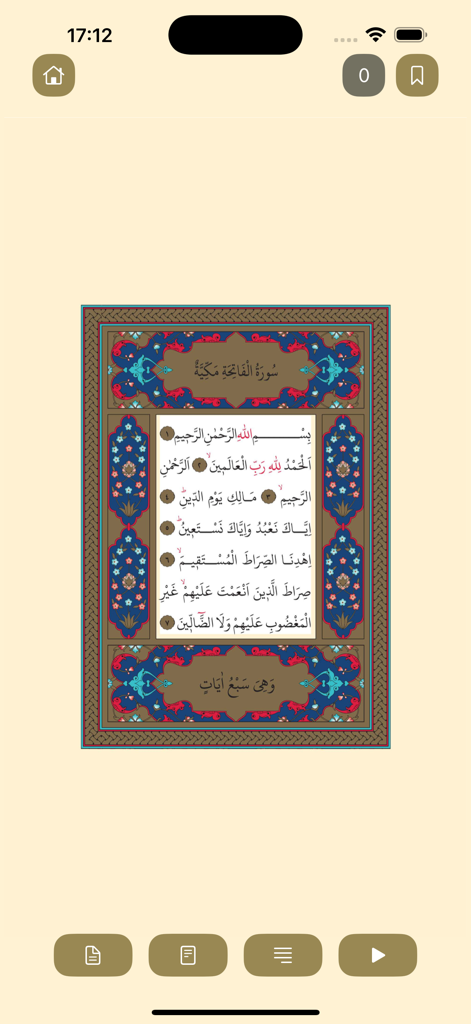 17:12
0
سُورَةُ الْفَاتِحَةِ مَكِّيَّةٌ
بِسْــــــــمِ اللّٰهِ الرَّحْمٰنِ الرَّحٖيمِ ١
اَلْحَمْدُ لِلّٰهِ رَبِّ الْعَالَمٖينَۙ ٢ اَلرَّحْمٰنِ
الرَّحٖيمِۙ ٣ مَـالِكِ يَوْمِ الدّٖينِؕ ٤
اِيَّـــاكَ نَعْبُدُ وَاِيَّاكَ نَسْــتَعٖينُؕ ٥
اِهْدِنَــا الصِّرَاطَ الْمُسْــتَقٖيـمَۙ ٦
صِرَاطَ الَّذٖينَ اَنْعَمْتَ عَلَيْهِمْۙ غَيْرِ
الْمَغْضُوبِ عَلَيْهِمْ وَلَا الضَّٓالّٖينَ ٧
وَهِىَ سَبْعُ اٰيَاتٍ